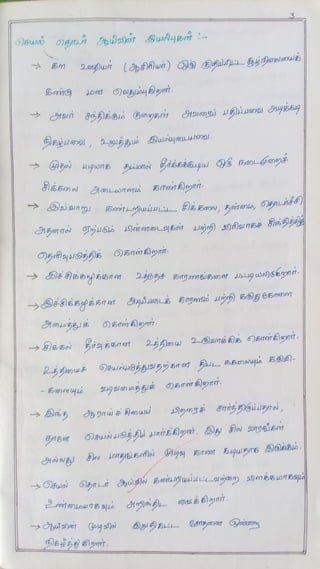 3
செயல் தொடர் ஆய்வின் இயல்புகள் :-
→ கள ஊழியர் (ஆசிரியர்) ஒரு குறிப்பிட்ட இந்நிலையைக்
கண்டு மன வெதும்புகிறார்.
→ அவர் சந்திக்கும் குறைகள் அவரைப் பதிப்பவை அடிக்கடி
நிகழ்பவை, உறுத்தும் இயல்புடையவை.
→ முதல் படியாக தம்மால் தீர்க்கக்கூடிய ஒரு நடைமுறைச்
சிக்கலை அடையாளம் காண்கிறார்.
→ இவ்வாறு கண்டறியப்பட்ட சிக்கலை, தன்மை, தொடர்ச்சி
அதனால் ஏற்படும் பின்னடைவுகள் பற்றி விரிவாகச் சிந்தித்து
தெளிவுபடுத்திக் கொள்கிறார்.
→ இச்சிக்கலுக்கான உத்தச காரணங்களை பட்டியலிடுகிறார்.
→ இச்சிக்கலுக்கான அடிப்படைக் காரணம் பற்றி கருதுகோளை
அமைத்துக் கொள்கிறார்.
→ சிக்கல் தீர்வுக்கான உத்தியை உருவாக்கிக் கொள்கிறார்.
உத்தியைச் செயல்படுத்துவதற்கான திட்ட வகையும் கருவி-
- களையும் வடிவமைத்துக் கொள்கிறார்.
→ இந்த ஆராய்ச்சியைப் பிறரைச் சார்ந்திருப்பதால்,
தானே செயல்படுத்திப் பார்க்கிறார். இது சில வாரங்கள்
அல்லது சில மாதங்களில் முடிவு காண கூடியதாக இருக்கும்.
→ செயல் தொடர் ஆய்வில் கண்டறியப்பட்டவற்றை விளக்கமாகவும்
உண்மையாகவும் அறிந்திட வைக்கிறார்.
→ ஆய்வின் முடிவில் இறுதிகட்ட சோதனை ஒன்றை
நிகழ்த்துகிறார்.